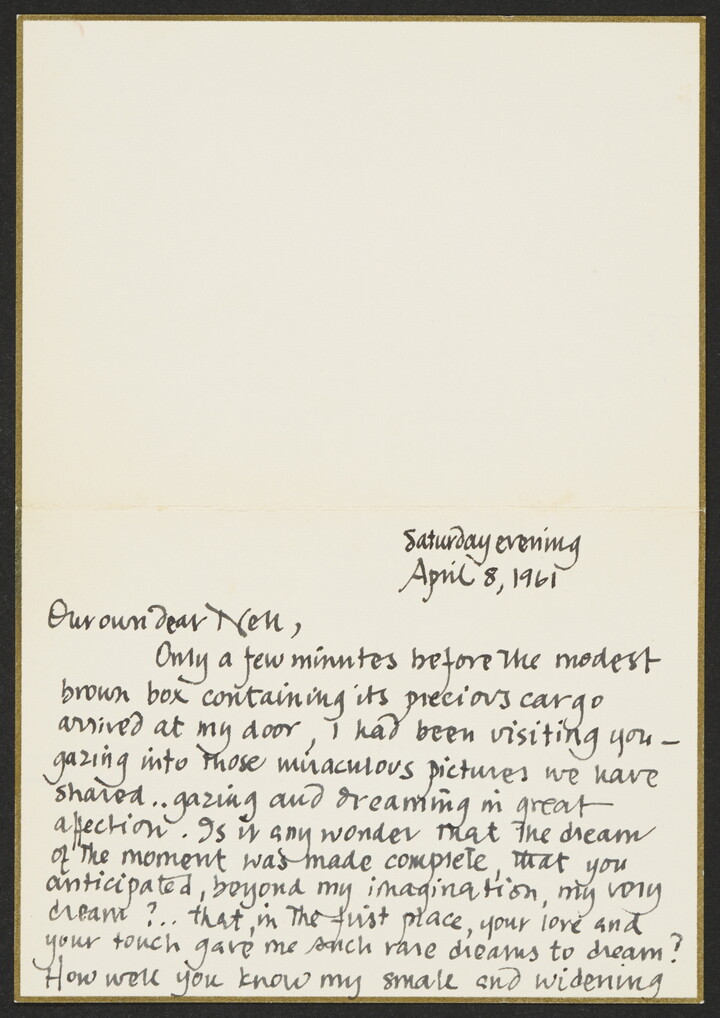 Saturday evening
April 8, 1961
Our own dear Nell,
Only a few minutes before the modest
brown box containing its precious cargo
arrived at my door, I had been visiting you —
gazing into those miraculous pictures we have
shared.. gazing and dreaming in great
affection. Is it any wonder that the dream
of the moment was made complete, that you
anticipated, beyond my imagination, my very
dream?.. that, in the first place, your love and
your touch gave me such rare dreams to dream?
How well you know my small and widening